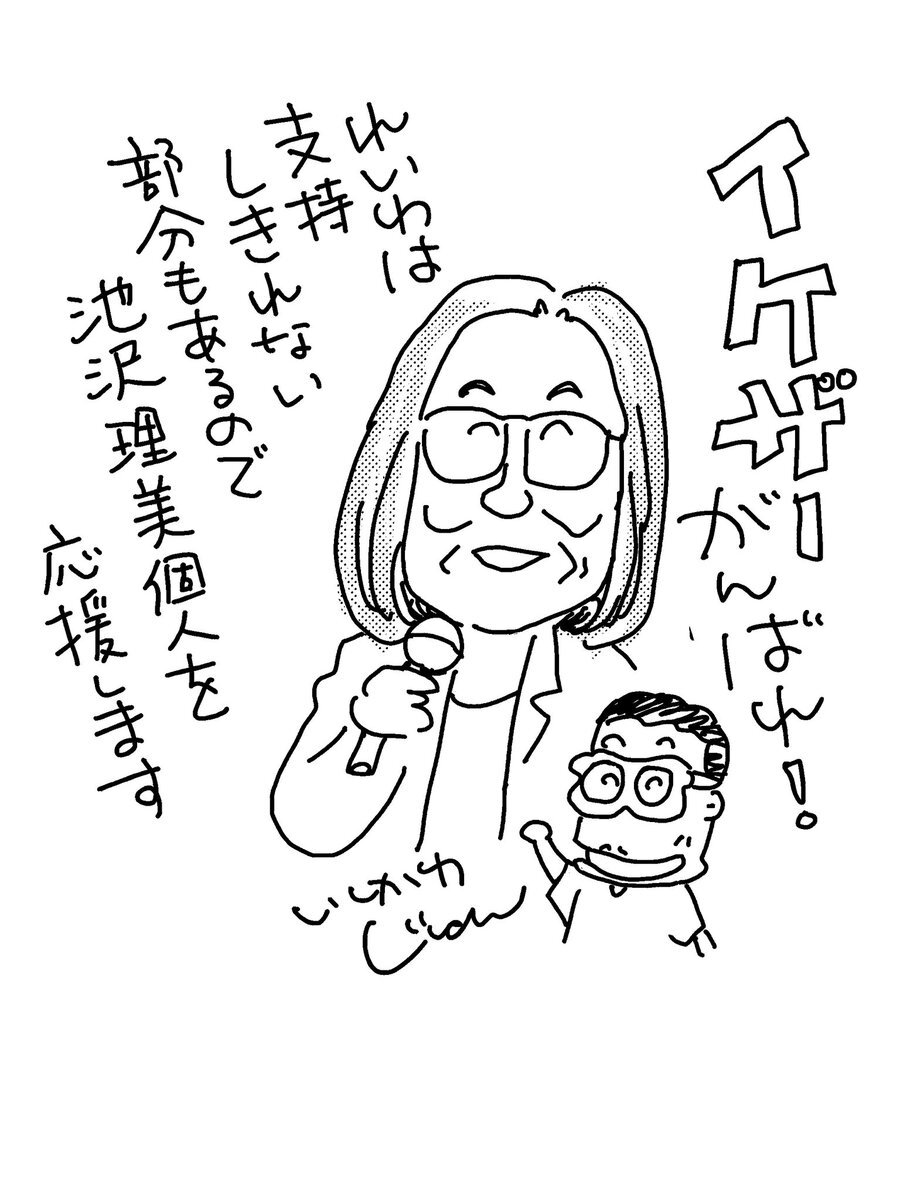 イケザー
がんばれ！
れいわは
支持
しきれない
部分もあるので
池沢理美個人を
応援します
いしかわ
じゅん